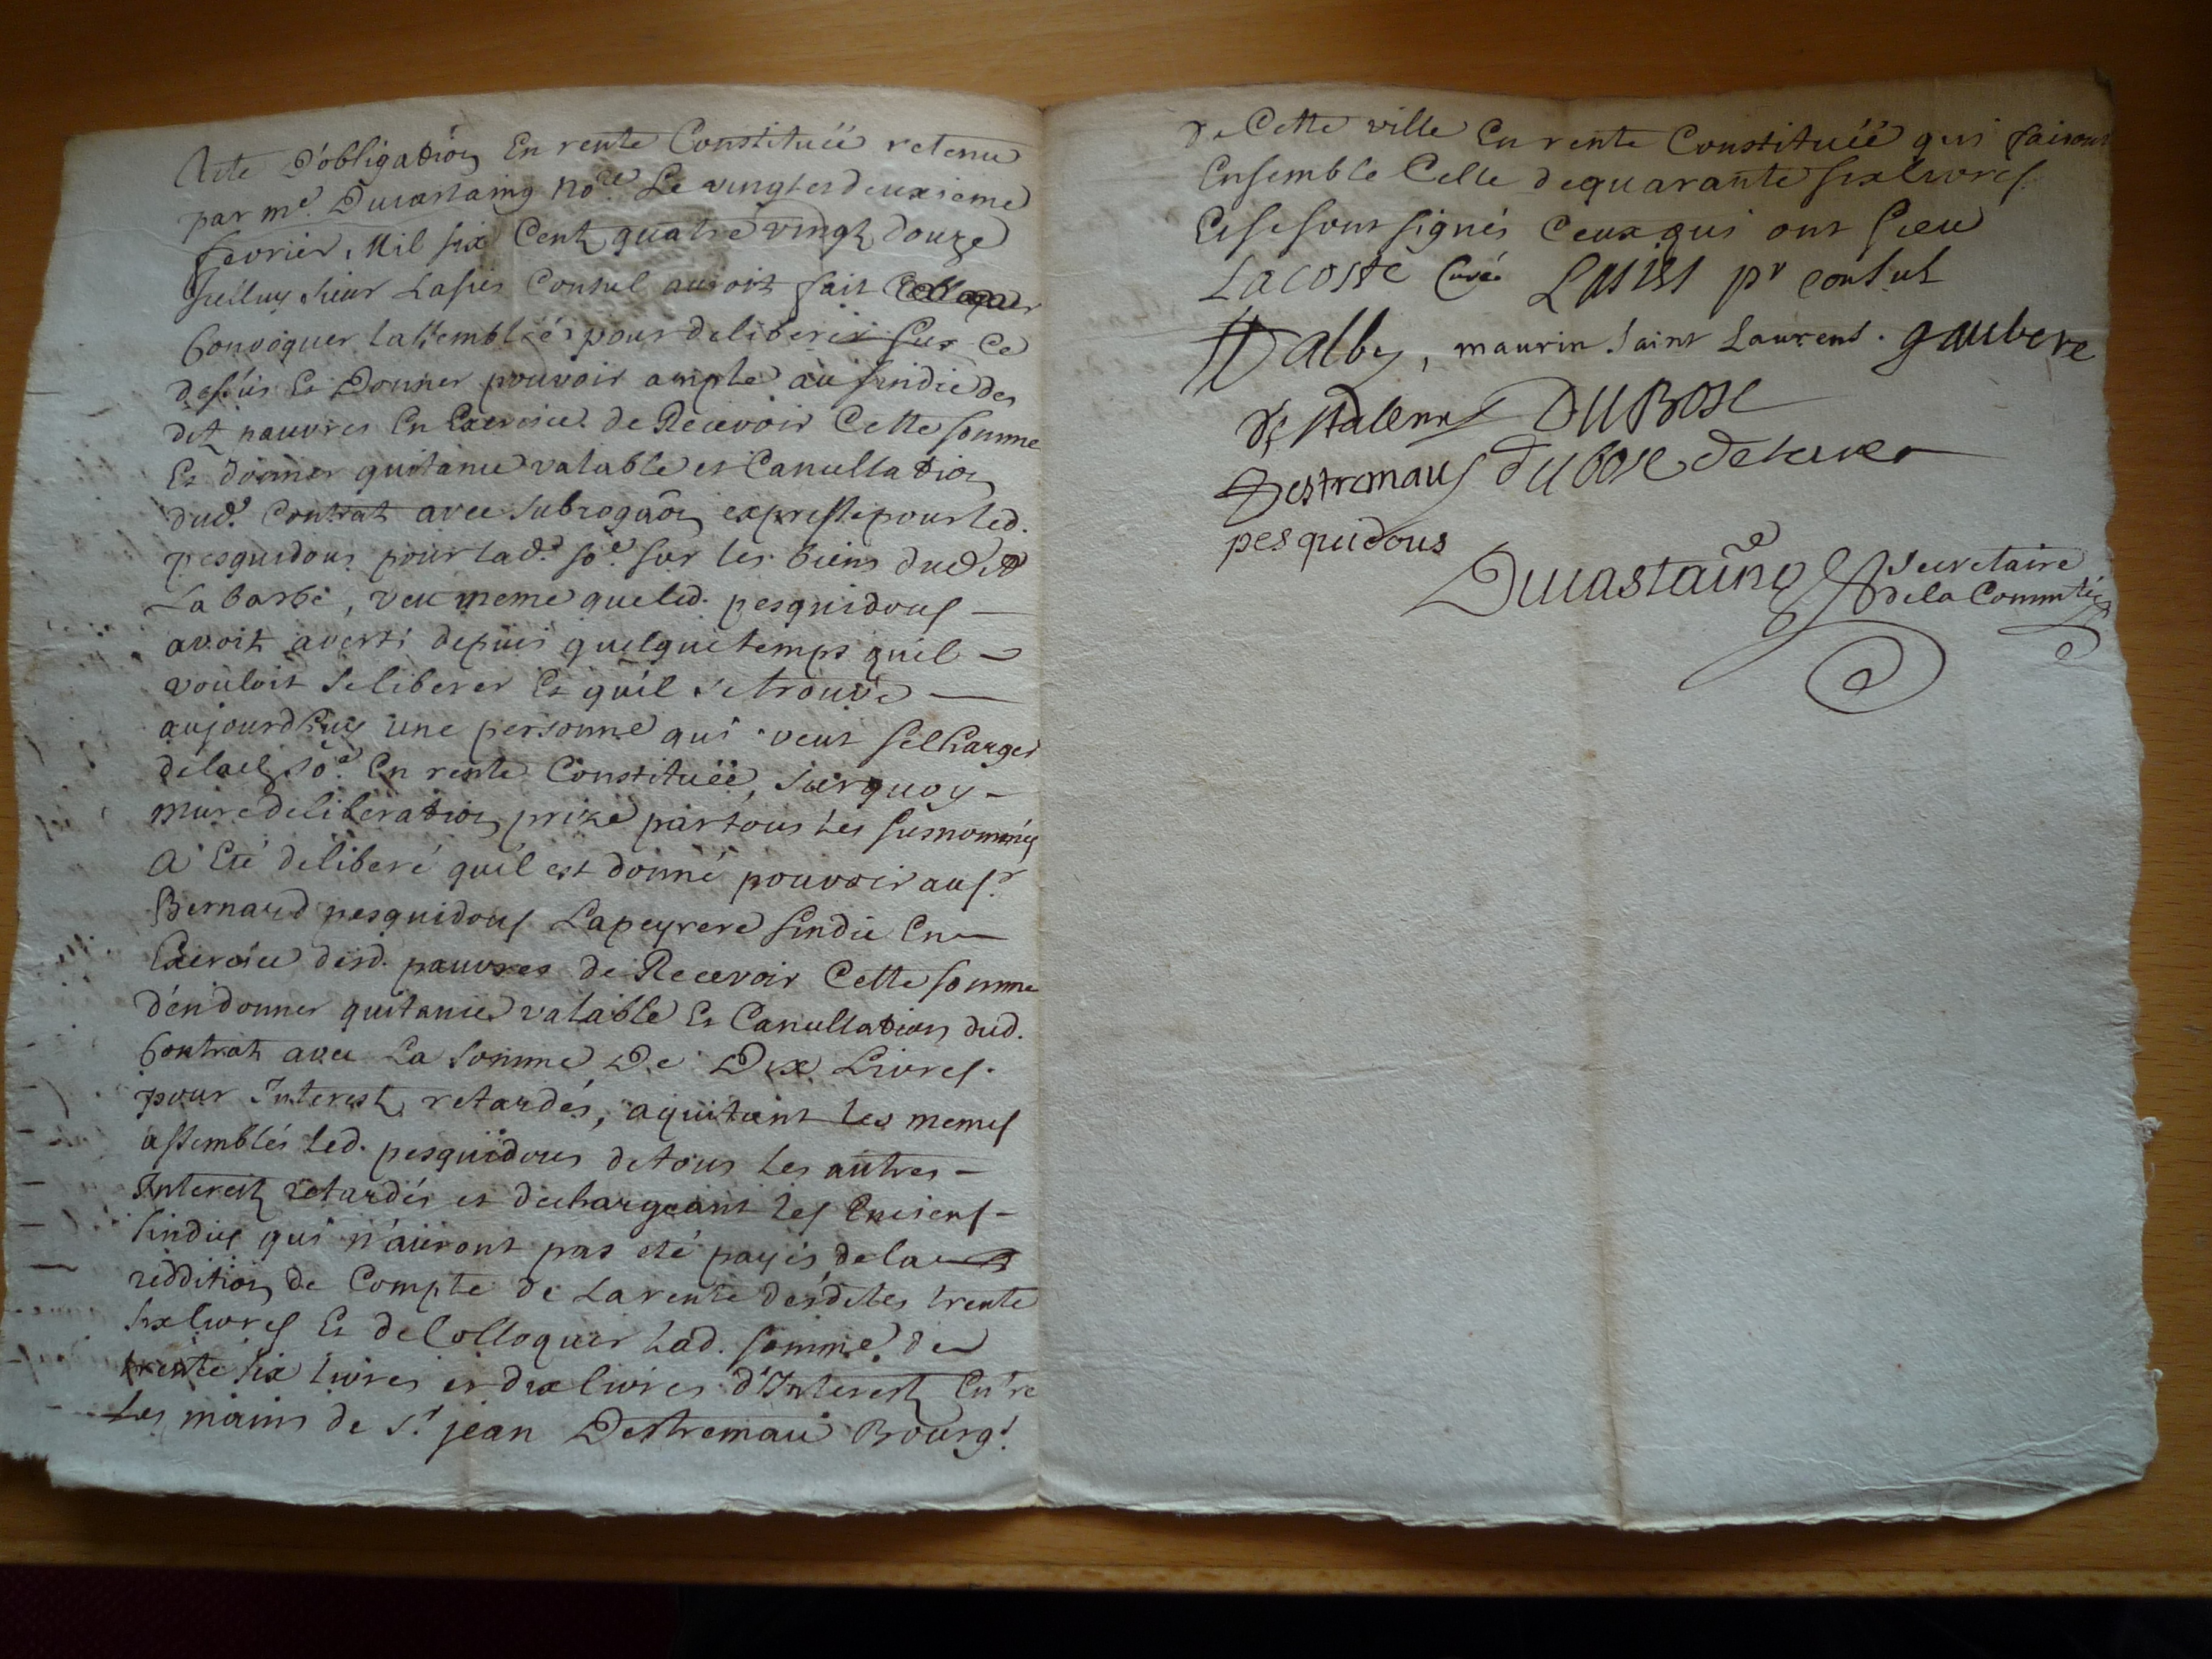 Acte D'obligation En rente Constituëë retenu
par me. Ducastaing nore. Le vingt et deuxieme
fevrier, Mil six Cent quatre vingt douze
Sieur Lasies Consul auroit fait
Convoquer lassemblée pour deliberer sur Ce
dessus Et Donner pouvoir ample au sindic des
dit pauvres En Exercice de Recevoir Cette somme
Et donner quitance valable et Canullation
dud. Contrat avec subrogaôn expresse pour led.
pesquidous pour lad. soe. sur les biens dudit
La barbe, veu meme que led. pesquidous
avoit averti depuis quelque temps quil
vouloit se liberer Et qu'il se trouve
aujourdhuy une personne qui veut se Charger
de lad. soe. En rente Constituëë, sur quoy
mure deliberation prize par tous les susnommés
A Eté deliberé qu'il est donné pouvoir au sr.
Bernard pesquidous Lapeyrere sindic En
Exercice desd. pauvres de Recevoir Cette somme
d'en donner quitance valable Et Canullation dud.
Contrat avec La somme De Dix Livres.
pour Interest retardés, aquitant les memes
assemblés led. pesquidous de tous les autres
Interest retardés et dechargeant les Enciens
sindics qui n'auront pas eté payés de la
reddition de Compte de La rente desdites trente
six livres Et de Colloquer lad. somme de
trente six livres et dix livres d'Interest Entre
Les mains de sr. jean Destremau Bourgs.
De Cette ville En rente Constituëë qui fairont
Ensemble Celle de quarante six livres.
Et se sont signés Ceux qui ont sceu
Lacoste Curé Lasies pr consul
Dalby, maurin saint Laurens. gaubere
DUBOSC
Destremau dubosc
pesquidous
Ducastaing Secretaire
de la Commté